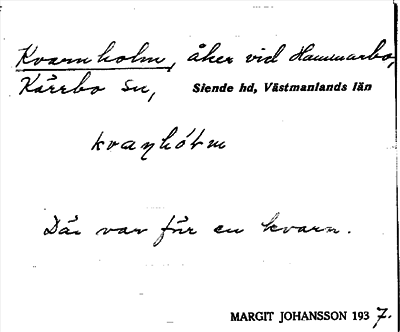 Kvarnholm, åker vid Hammarbo,
Kärrbo sn, Siende hd, Västmanlands län
kvaɳhólm
Där var för en kvarn.
MARGIT JOHANSSON 1937.